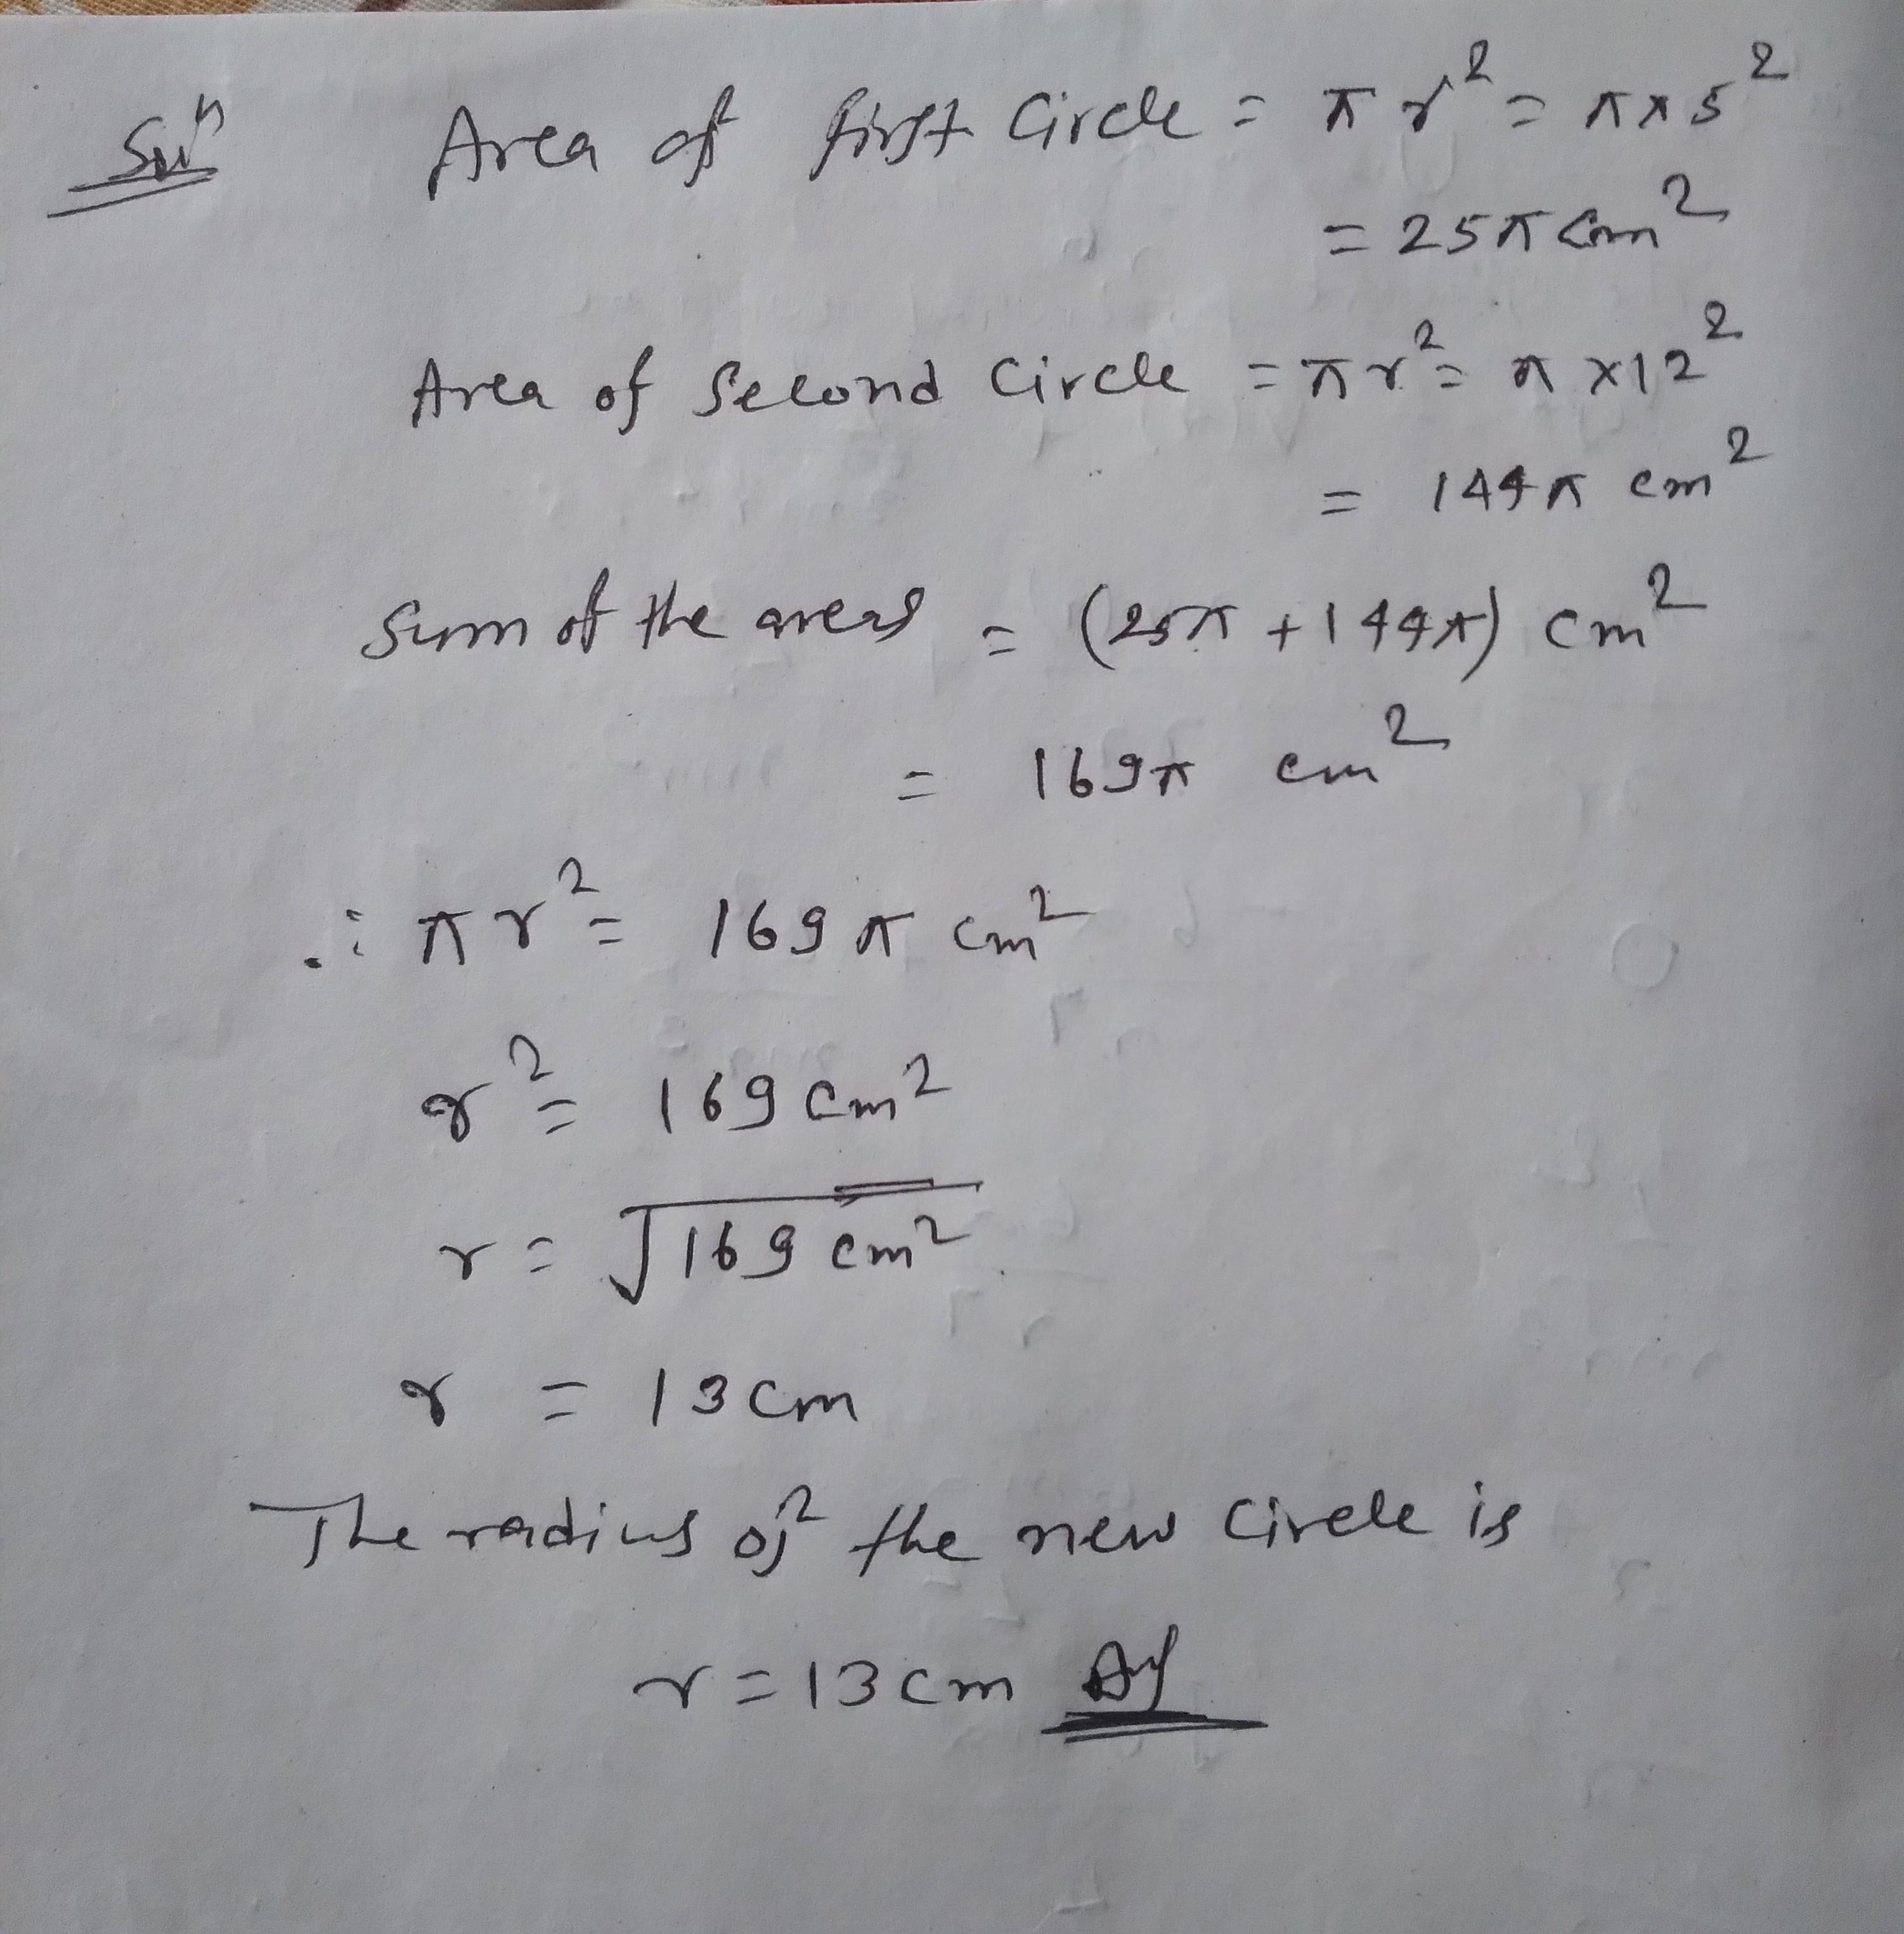 Solⁿ Area of first Circle = πr² = π×5²
= 25π cm²
Area of Second Circle = πr² = π×12²
= 144π cm²
Sum of the areas = (25π + 144π) cm²
= 169π cm²
∴ πr² = 169π cm²
r² = 169 cm²
r = √169 cm²
r = 13 cm
The radius of the new Circle is
r = 13 cm Ans